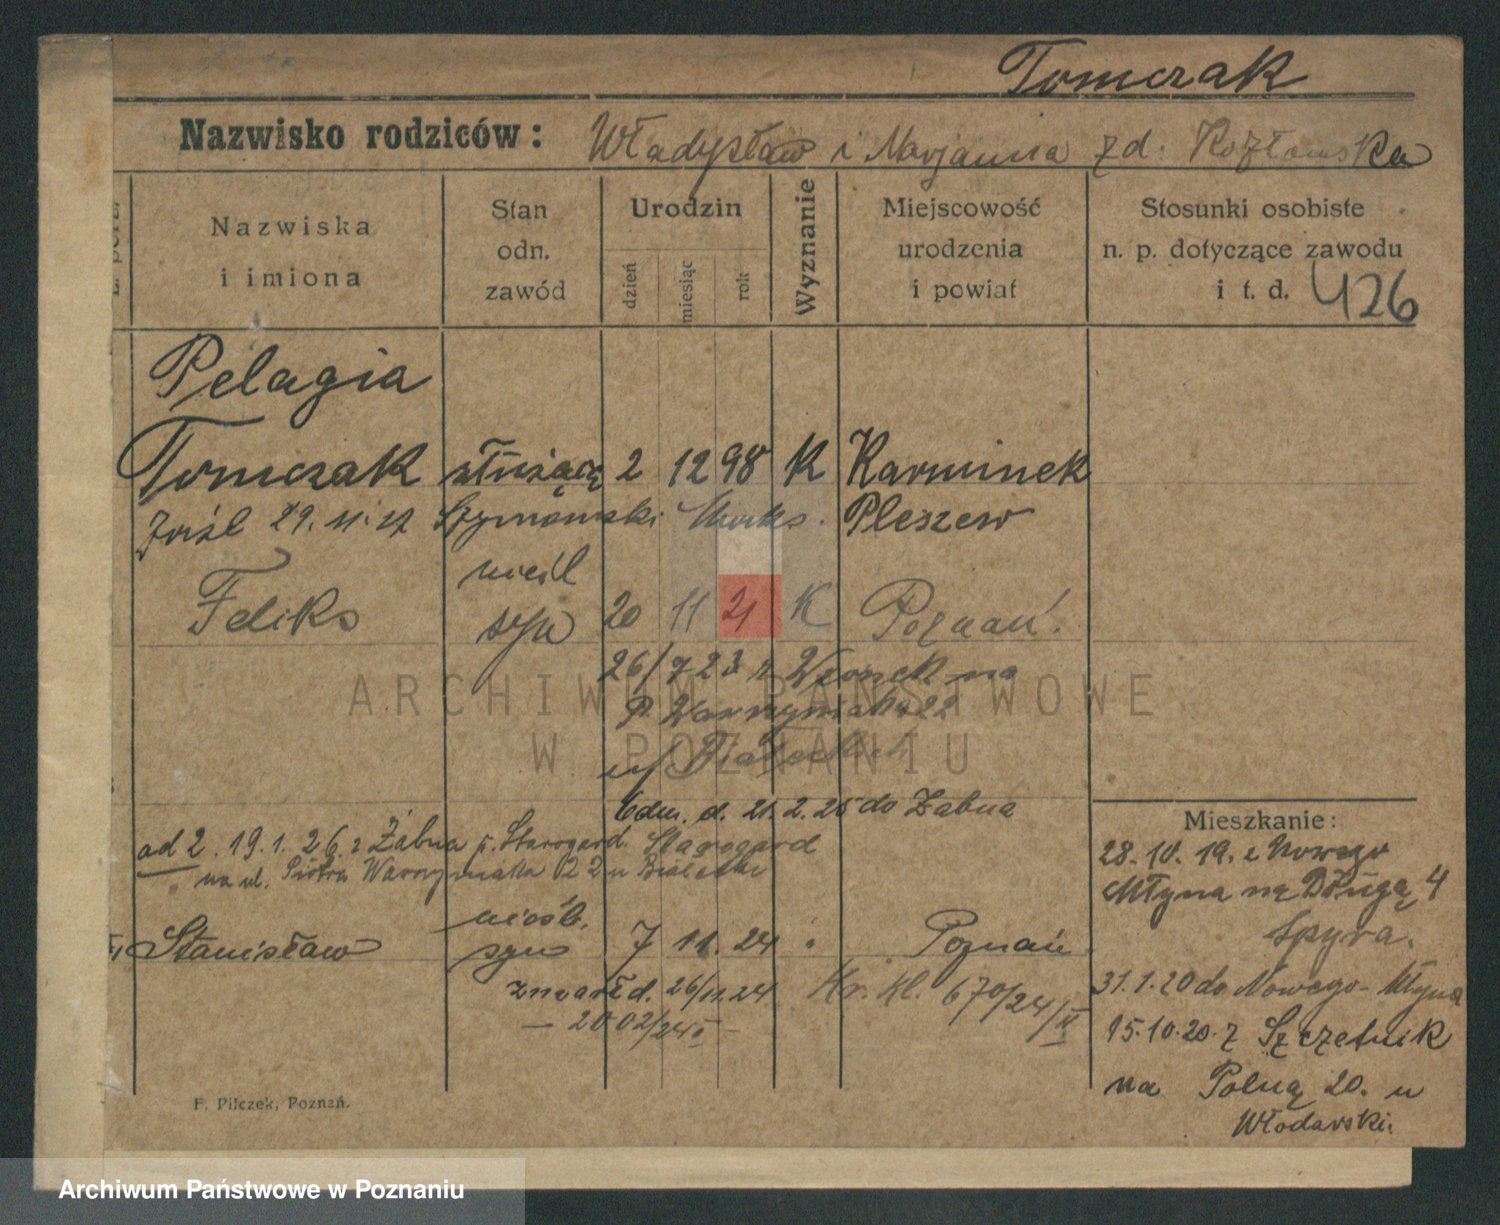 Tomczak
Nazwisko rodziców: Władysław i Marjanna zd. Kozłowska
Nazwiska i imiona
Stan odn. zawód
Urodzin
dzień miesiąc rok
Wyznanie
Miejscowość urodzenia i powiat
Stosunki osobiste n. p. dotyczące zawodu i t. d. 426
Pelagia
Tomczak służącą 2 12 98 K Karminek
29. 11. 27 Szymański Pleszew
nieśl
Feliks syn 20 11 21 K Poznań.
26/7 23 z Wronek na
P. Wawrzyniaka 22
u/
ARCHIWUM PAŃSTWOWE
W POZNANIU
Odm. d. 21. 2. 25 do Żabna
od 2. 19. 1. 26. z Żabna p. Starogard. Starogard
na ul. Piotra Wawrzyniaka 22 u Białecki
nieśb.
Stanisław syn 7 11. 24 Poznań
zmarł d. 26/11.24 Kr. kl. 670/24/II
— 2002/24 —
Mieszkanie:
28. 10. 19. z Nowego
Młyna na Długą 4
Spyra.
31. 1. 20 do Nowego-Młyna
15. 10. 20. z Szczetnik
na Polną 20. u
Włodarski.
F. Pilczek, Poznań.
Archiwum Państwowe w Poznaniu